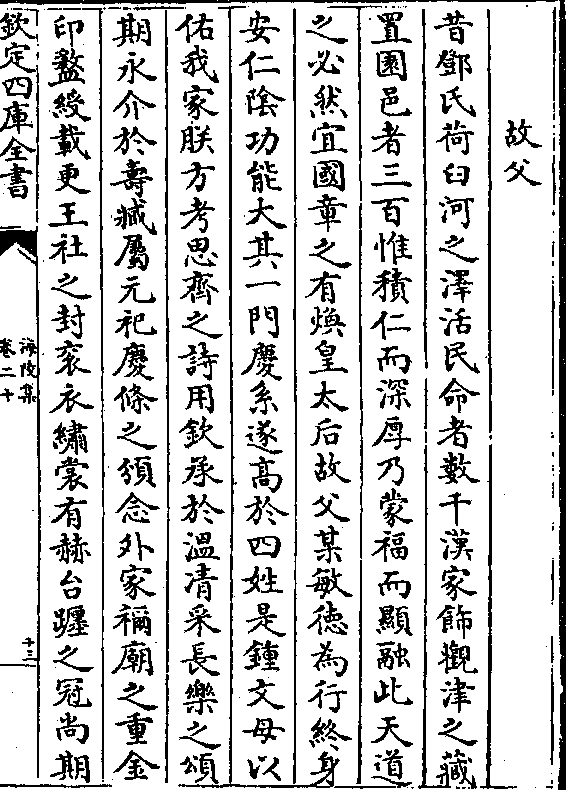 故父
昔鄧氏荷臼河之澤活民命者數千漢家飾觀津之藏
置園邑者三百惟積仁而深厚乃蒙福而顯融此天道
之必然宜國章之有煥皇太后故父某敏徳為行終身
安仁陰功能大其一門慶系遂髙於四姓是鍾文母以
佑我家朕方考思齊之詩用欽承於溫凊采長樂之頌
期永介於壽臧屬元祀慶條之頒念外家禰廟之重金
印盭綬載更王社之封衮衣繡裳有赫台躔之冠尚期
欽定四庫全書
海陵集
卷二十
十三